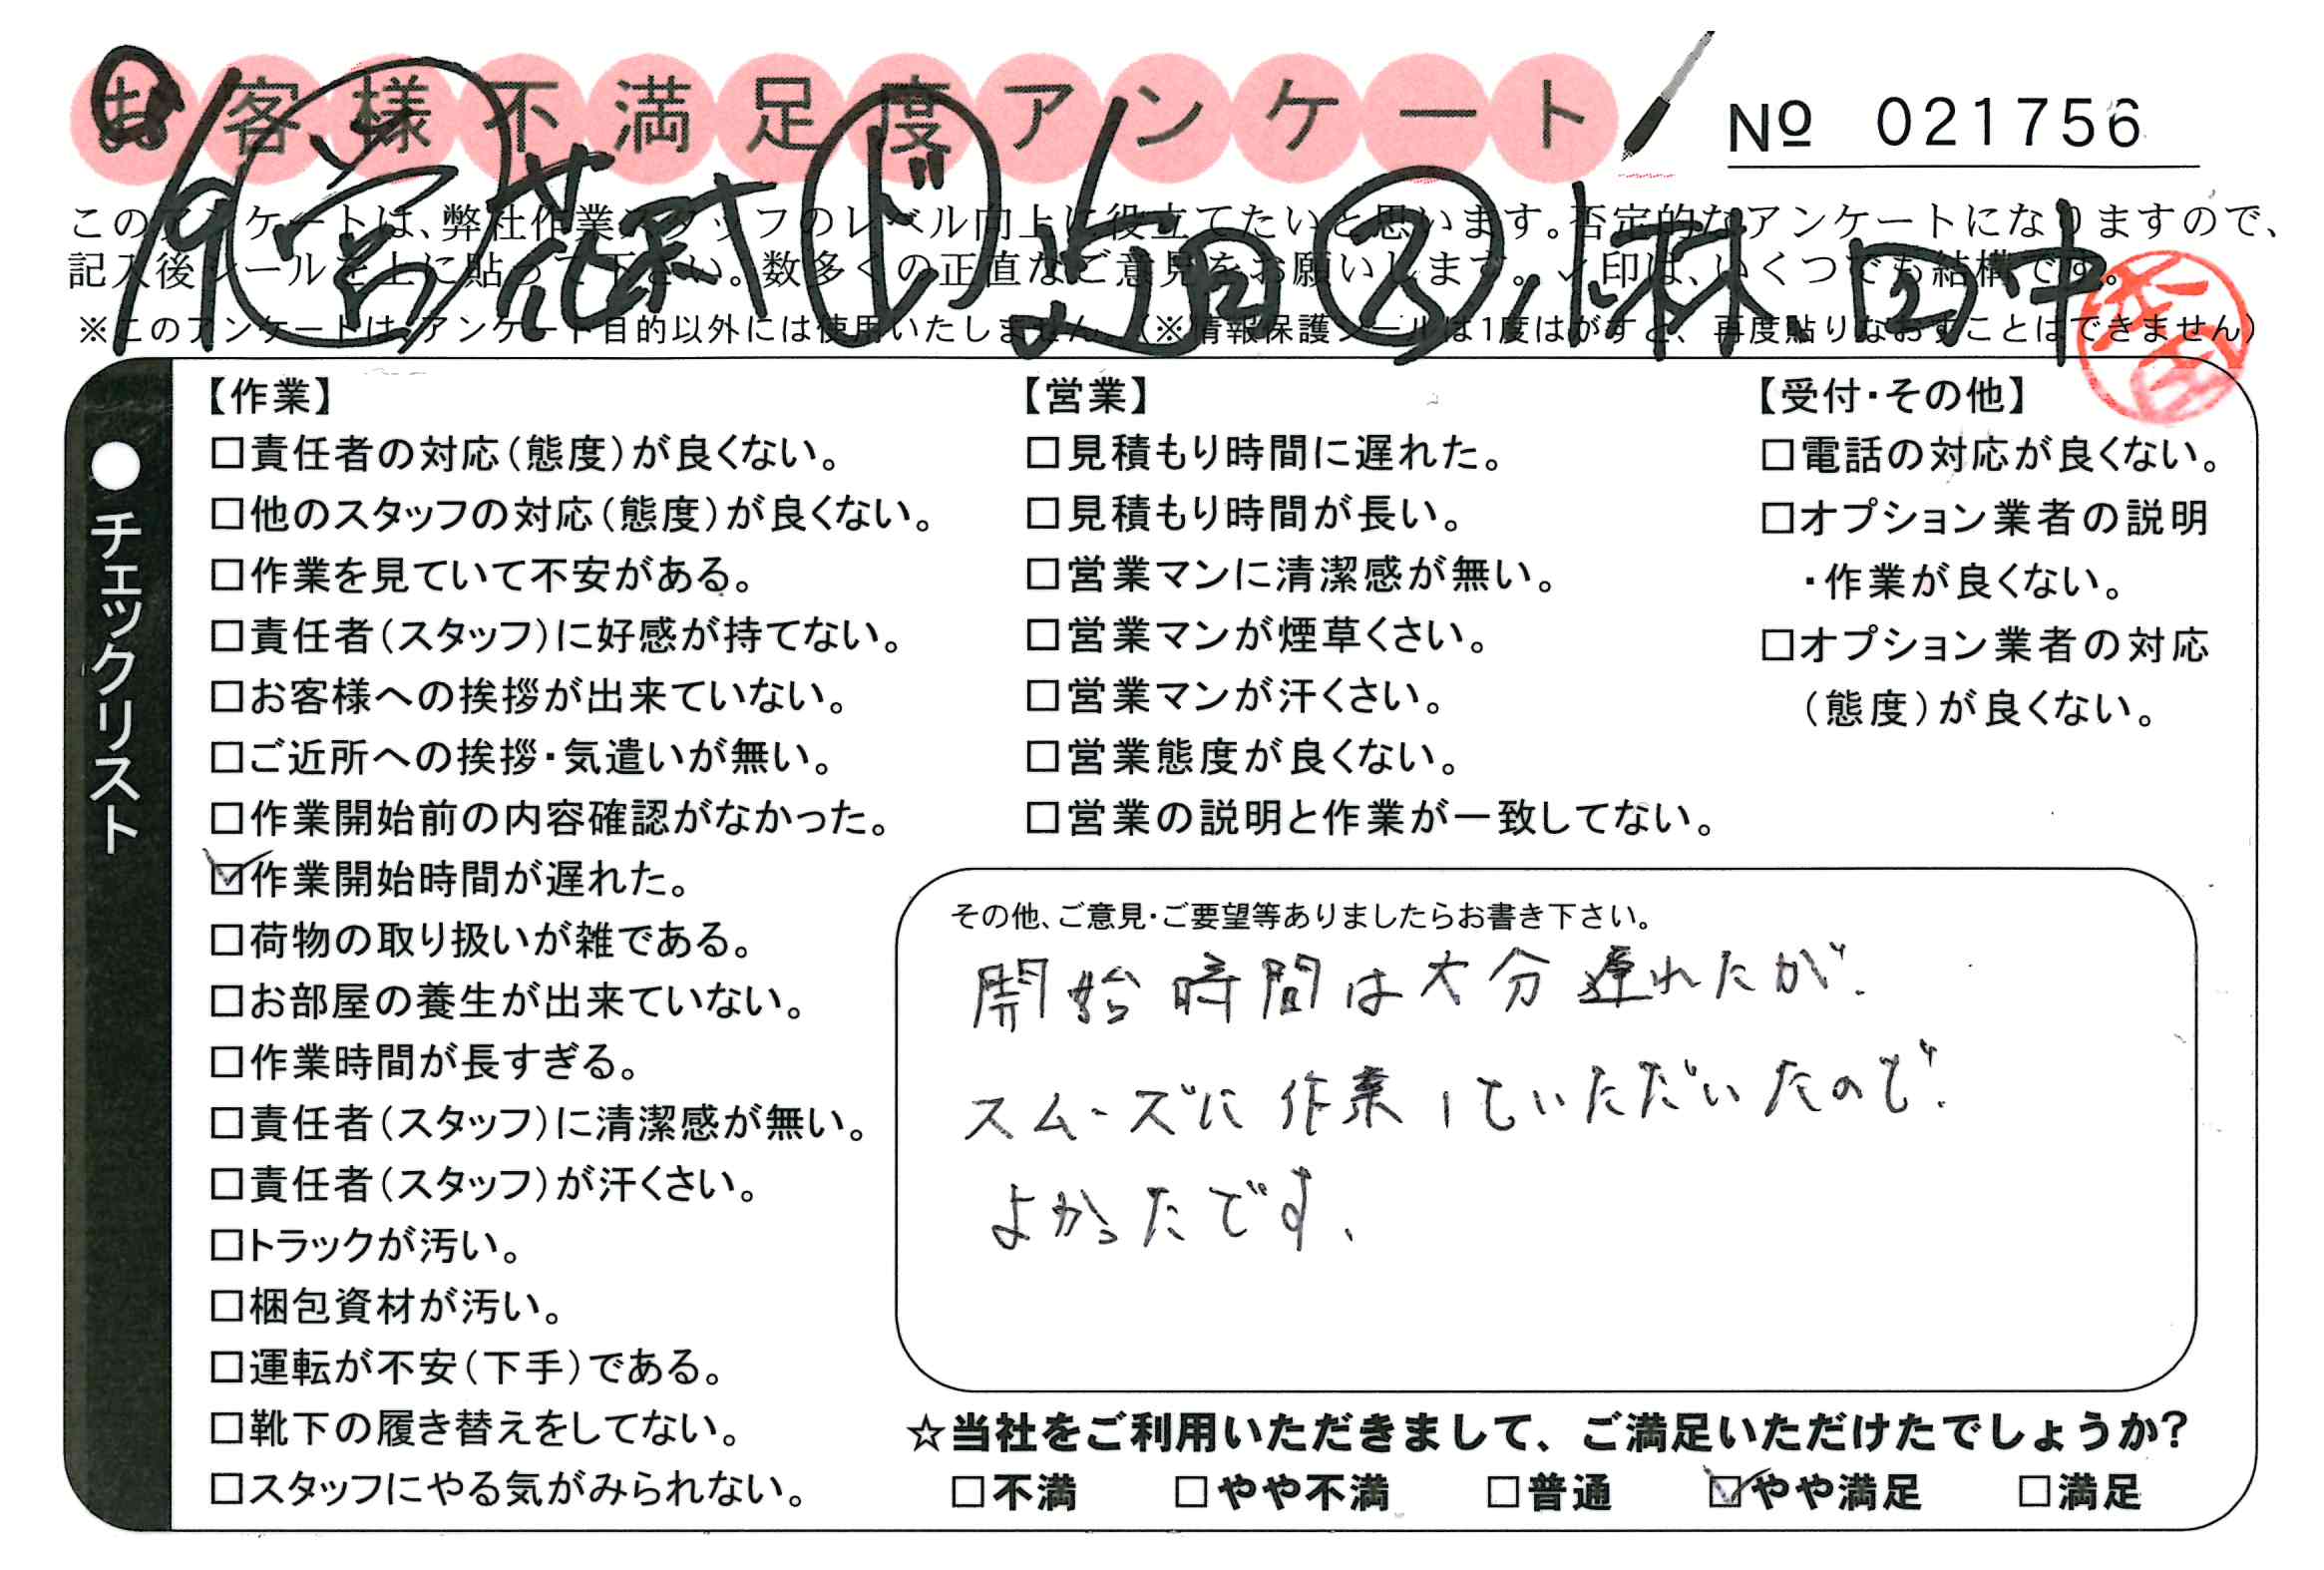 お客様不満足度アンケート
№ 021756
このアンケートは、弊社作業スタッフのレベル向上に役立てたいと思います。否定的なアンケートになりますので、
記入後シールを上に貼って下さい。数多くの正直なご意見をお願いします。✓印は、いくつでも結構です。
※このアンケートは、アンケート目的以外には使用いたしません。（※情報保護シールは1度はがすと、再度貼りなおすことはできません）
営 花村 ド 小林 田中
●チェックリスト
【作業】
□責任者の対応（態度）が良くない。
□他のスタッフの対応（態度）が良くない。
□作業を見ていて不安がある。
□責任者（スタッフ）に好感が持てない。
□お客様への挨拶が出来ていない。
□ご近所への挨拶・気遣いが無い。
□作業開始前の内容確認がなかった。
☑作業開始時間が遅れた。
□荷物の取り扱いが雑である。
□お部屋の養生が出来ていない。
□作業時間が長すぎる。
□責任者（スタッフ）に清潔感が無い。
□責任者（スタッフ）が汗くさい。
□トラックが汚い。
□梱包資材が汚い。
□運転が不安（下手）である。
□靴下の履き替えをしてない。
□スタッフにやる気がみられない。
【営業】
□見積もり時間に遅れた。
□見積もり時間が長い。
□営業マンに清潔感が無い。
□営業マンが煙草くさい。
□営業マンが汗くさい。
□営業態度が良くない。
□営業の説明と作業が一致してない。
【受付・その他】
□電話の対応が良くない。
□オプション業者の説明
・作業が良くない。
□オプション業者の対応
（態度）が良くない。
その他、ご意見・ご要望等ありましたらお書き下さい。
開始時間は大分遅れたが、
スムーズに作業していただいたので、
よかったです、
☆当社をご利用いただきまして、ご満足いただけたでしょうか？
□不満 □やや不満 □普通 ☑やや満足 □満足